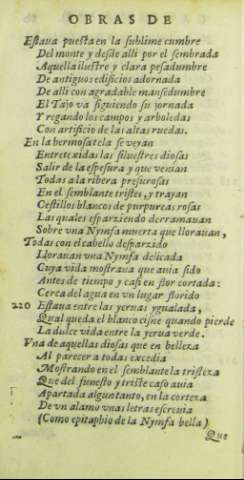 OBRAS DE
Estaua puesta en la sublime cumbre
Del monte y desde alli por el sembrada
Aquella ilustre y clara pesadumbre
De antiguos edificios adornada
De alli con agradable mansedumbre
El Tajo va siguiendo su jornada
Y regando los campos y arboledas
Con artificio de las altas ruedas.
En la hermosa tela se veyan
Entretexidas las siluestres diosas
Salir de la espesura y que venian
Todas a la ribera presurosas
En el semblante tristes, y trayan
Cestillos blancos de purpureas rosas
Las quales esparziendo derramauan
Sobre vna Nymfa muerta que llorauan,
Todas con el cabello desparzido
Llorauan vna Nymfa delicada
Cuya vida mostraua que auia sido
Antes de tiempo y casi en flor cortada:
Cerca del agua en vn lugar florido
220 Estaua entre las yeruas ygualada,
Qual queda el blanco cisne quando pierde
La dulce vida entre la yerua verde.
Vna de aquellas diosas que en belleza
Al parecer a todas excedia
Mostrando en el semblante la tristeza
Que del funesto y triste caso auia
Apartada algun tanto, en la corteza
De vn alamo vnas letras escreuia
(Como epitaphio de la Nymfa bella)
Que